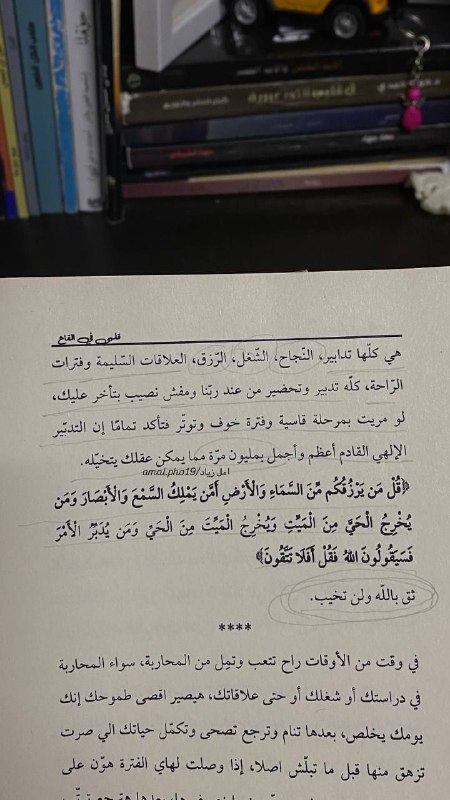 قلبي في القاع
هي كلّها تدابير، النّجاح، الشّغل، الرّزق، العلاقات السّليمة وفترات
الرّاحة، كلّه تدبير وتحضير من عند ربّنا ومفش نصيب بتأخر عليك،
لو مريت بمرحلة قاسية وفترة خوف وتوتّر فتأكد تمامًا إن التدبّير
الإلهي القادم أعظم وأجمل بمليون مرّة مما يمكن عقلك يتخيّله.
امل زياد/amal.pho19
﴿قُلْ مَن يَرْزُقُكُم مِّنَ السَّمَاءِ وَالْأَرْضِ أَمَّن يَمْلِكُ السَّمْعَ وَالْأَبْصَارَ وَمَن
يُخْرِجُ الْحَيَّ مِنَ الْمَيِّتِ وَيُخْرِجُ الْمَيِّتَ مِنَ الْحَيِّ وَمَن يُدَبِّرُ الْأَمْرَ
فَسَيَقُولُونَ اللَّهُ فَقُلْ أَفَلَا تَتَّقُونَ﴾
ثق باللّه ولن تخيب.
****
في وقت من الأوقات راح تتعب وتمِل من المحاربة، سواء المحاربة
في دراستك أو شغلك أو حتى علاقاتك، هيصير اقصى طموحك إنك
يومك يخلص، بعدها تنام وترجع تصحى وتكمّل حياتك الي صرت
تزهق منها قبل ما تبلّش اصلا، إذا وصلت لهاي الفترة هوّن على